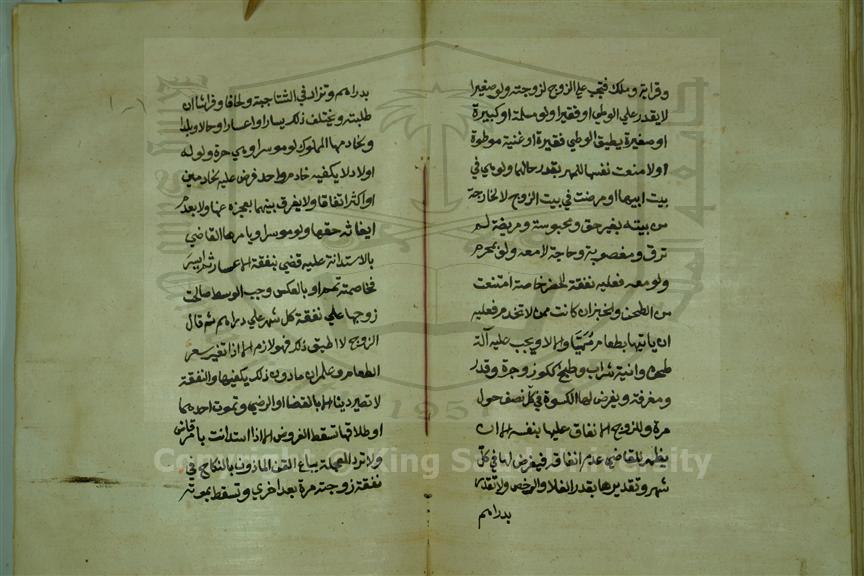 وقرابة وملك فتجب علي الزوج لزوجته ولو صغيرا
لا يقدر علي الوطي او فقيرا ولو مسلمة او كبيرة
او صغيرة يطيق الوطي فقيرة او غنية موطوة
اولا منعت نفسها للمهر بقدر حالهما ولو هي في
بيت ابيها او مرضت في بيت الزوج لا لخارجة
من بيته بغير حق ومحبوسة ومريضة لم
تزف ومغصوبة وحاجة لا معه ولو بمحرم
ولو معه فعليه نفقة الحضر خاصة امتنعت
من الطحن والخبز ان كانت ممن لا تخدم فعليه
ان ياتيها بطعام مُهَيَّا والا لا ويجب عليه آلة
طحن وانية شراب وطبخ ككوز وجرة وقدر
ومغرفة ويفرض لها الكسوة في كل نصف حول
مرة وللزوج الانفاق عليها بنفسه الا ان
يظهر للقاضي عدم انفاقه فيفرض لها في كل
شهر وتقديرها بقدر الغلا والرخص ولا تقدر
بدراهم
بدراهم وتزاد في الشتا جبة ولحافا وفراشا ان
طلبته ويختلف ذلك يسارا واعسارا وحالا وبلدا
ولخادمها المملوك لو موسرا وهي حرة ولو له
اولاد لا يكفيه خادم واحد فرض عليه لخادمين
او اكثر اتفاقا ولا يفرق بينهما بعجزه عنها ولا بعدم
ايفائه حقها ولو موسرا ويامرها القاضي
بالاستدانة عليه قضي بنفقة الاعسار ثم ايسر
فخاصمته تمم او بالعكس وجب الوسط صالحت
زوجها علي نفقة كل شهر علي دراهم ثم قال
الزوج لا اطيق ذلك فهو لازم الا اذا تغير سعر
الطعام وعلم ان ما دون ذلك يكفيها والنفقة
لا تصير دينا الا بالقضا او الرضي وبموت احدهما
او طلاقها تسقط الفروض الا اذا استدانت بامر قاض
ولا ترد المعجلة يباع القن الماذون بالنكاح في
نفقة زوجته مرة بعد اخري وتسقط بموته
Copyright © King Saud University
1957